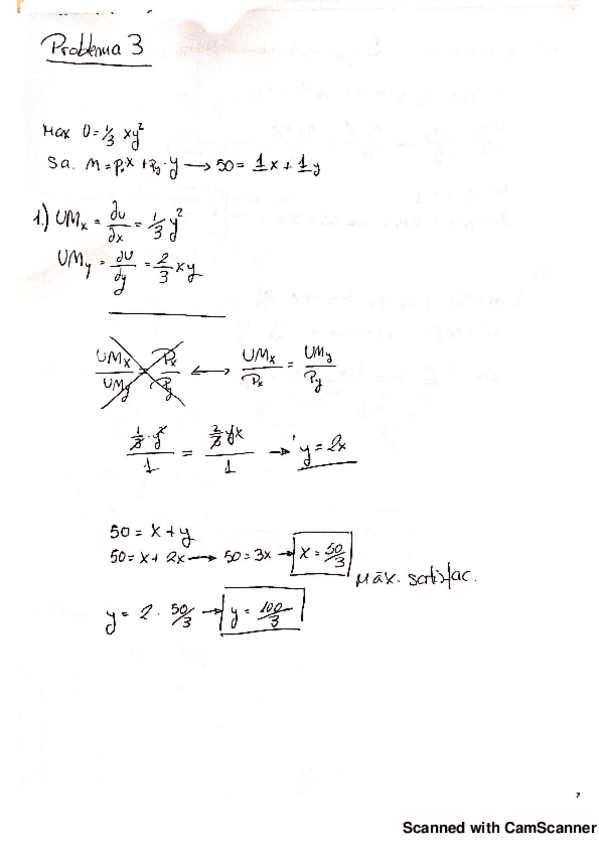 Problema 3
Max U = 1/3 · xy²
Sa. M = Pₓ·x + P_y · y → 50 = 1x + 1y
1.) UMₓ = ∂u/∂x = 1/3 y²
UM_y = ∂U/∂y = 2/3 xy
UMₓ/UM_y = Pₓ/P_y ↔ UMₓ/Pₓ = UM_y/P_y
1/3 · y²/1 = 2/3 yx/1 → y = 2x
50 = x + y
50 = x + 2x → 50 = 3x → x = 50/3
Máx. satisfac.
y = 2 · 50/3 → y = 100/3
Scanned with CamScanner